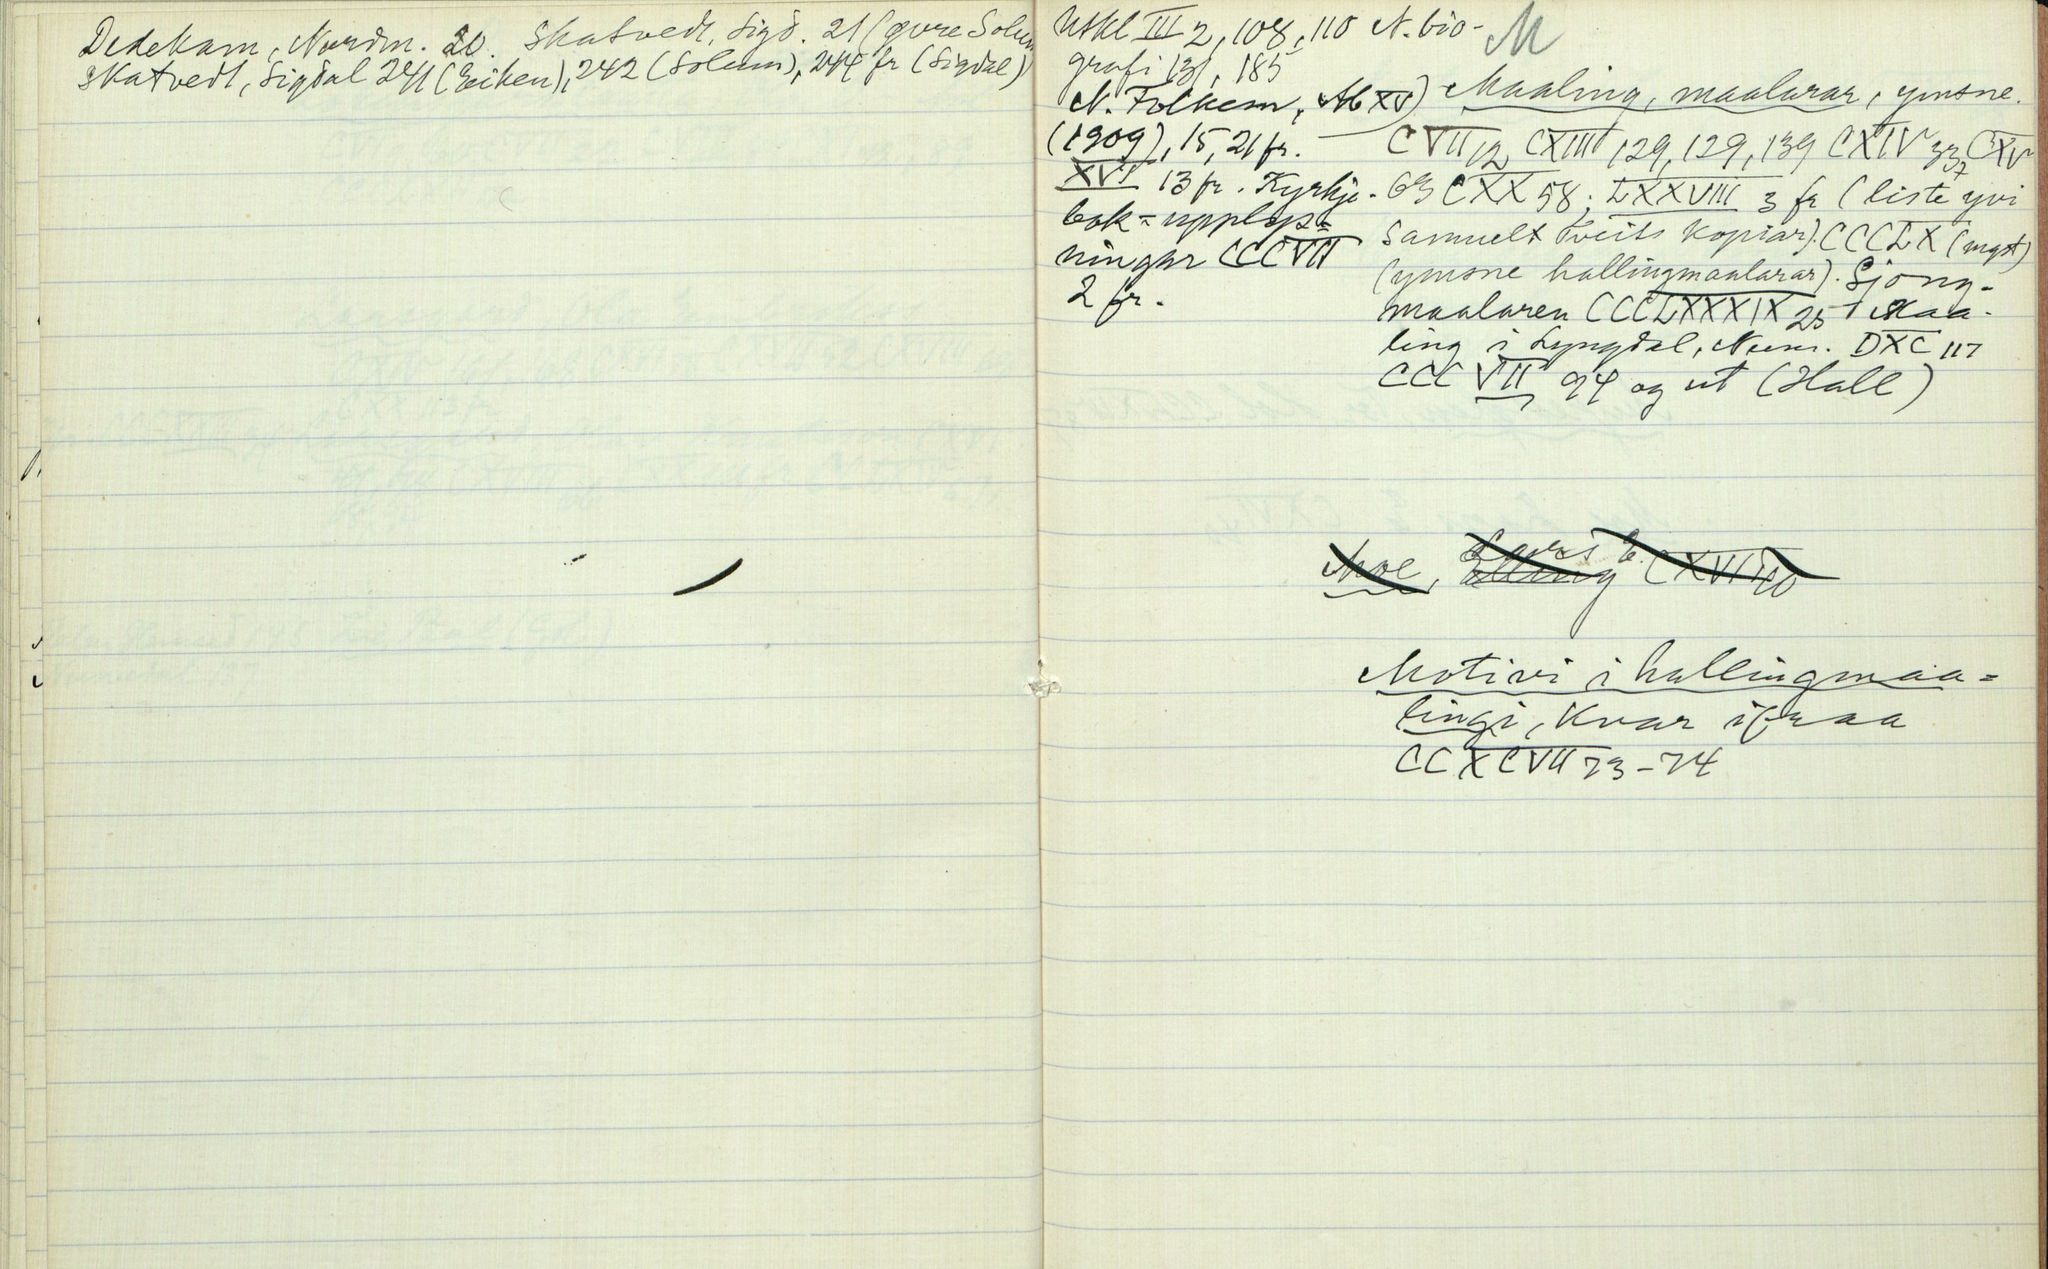 Dedekam, Nordm. 20. Skatvedt, Sigd. 21 (øvre Solum
Skatvedt, Sigdal 241 (Eiken), 242 (Solem), 244 fr (Sigdal)
M
Utkl III 2, 108, 110 N. bio-
grafi 131, 185
N. Folkem, Ab XV)
(1909), 15, 21 fr.
XVI 13 fr. Kyrkje-
bok-upplys=
ningar CCCVII
2 fr.
Maaling, maalarar, ymsne.
CVII 12 CXIII 129, 129, 139 CXIV 337 CXV
63 CXX 58; LXXVIII 3 fr (liste yvi
Samuelt Tveits kopiar). CCCLX (mgst)
(ymsne hallingmaalarar). Sjong-
maalaren CCCLXXXIX 25 Maa-
ling i Lyngdal, Num. DXC 117
CCCVII 94 og ut (Hall)
Moe, Lars E. CXVI 40
Motivi i hallingmaa=
lingi, kvar ifraa
CCXCVII 73-74